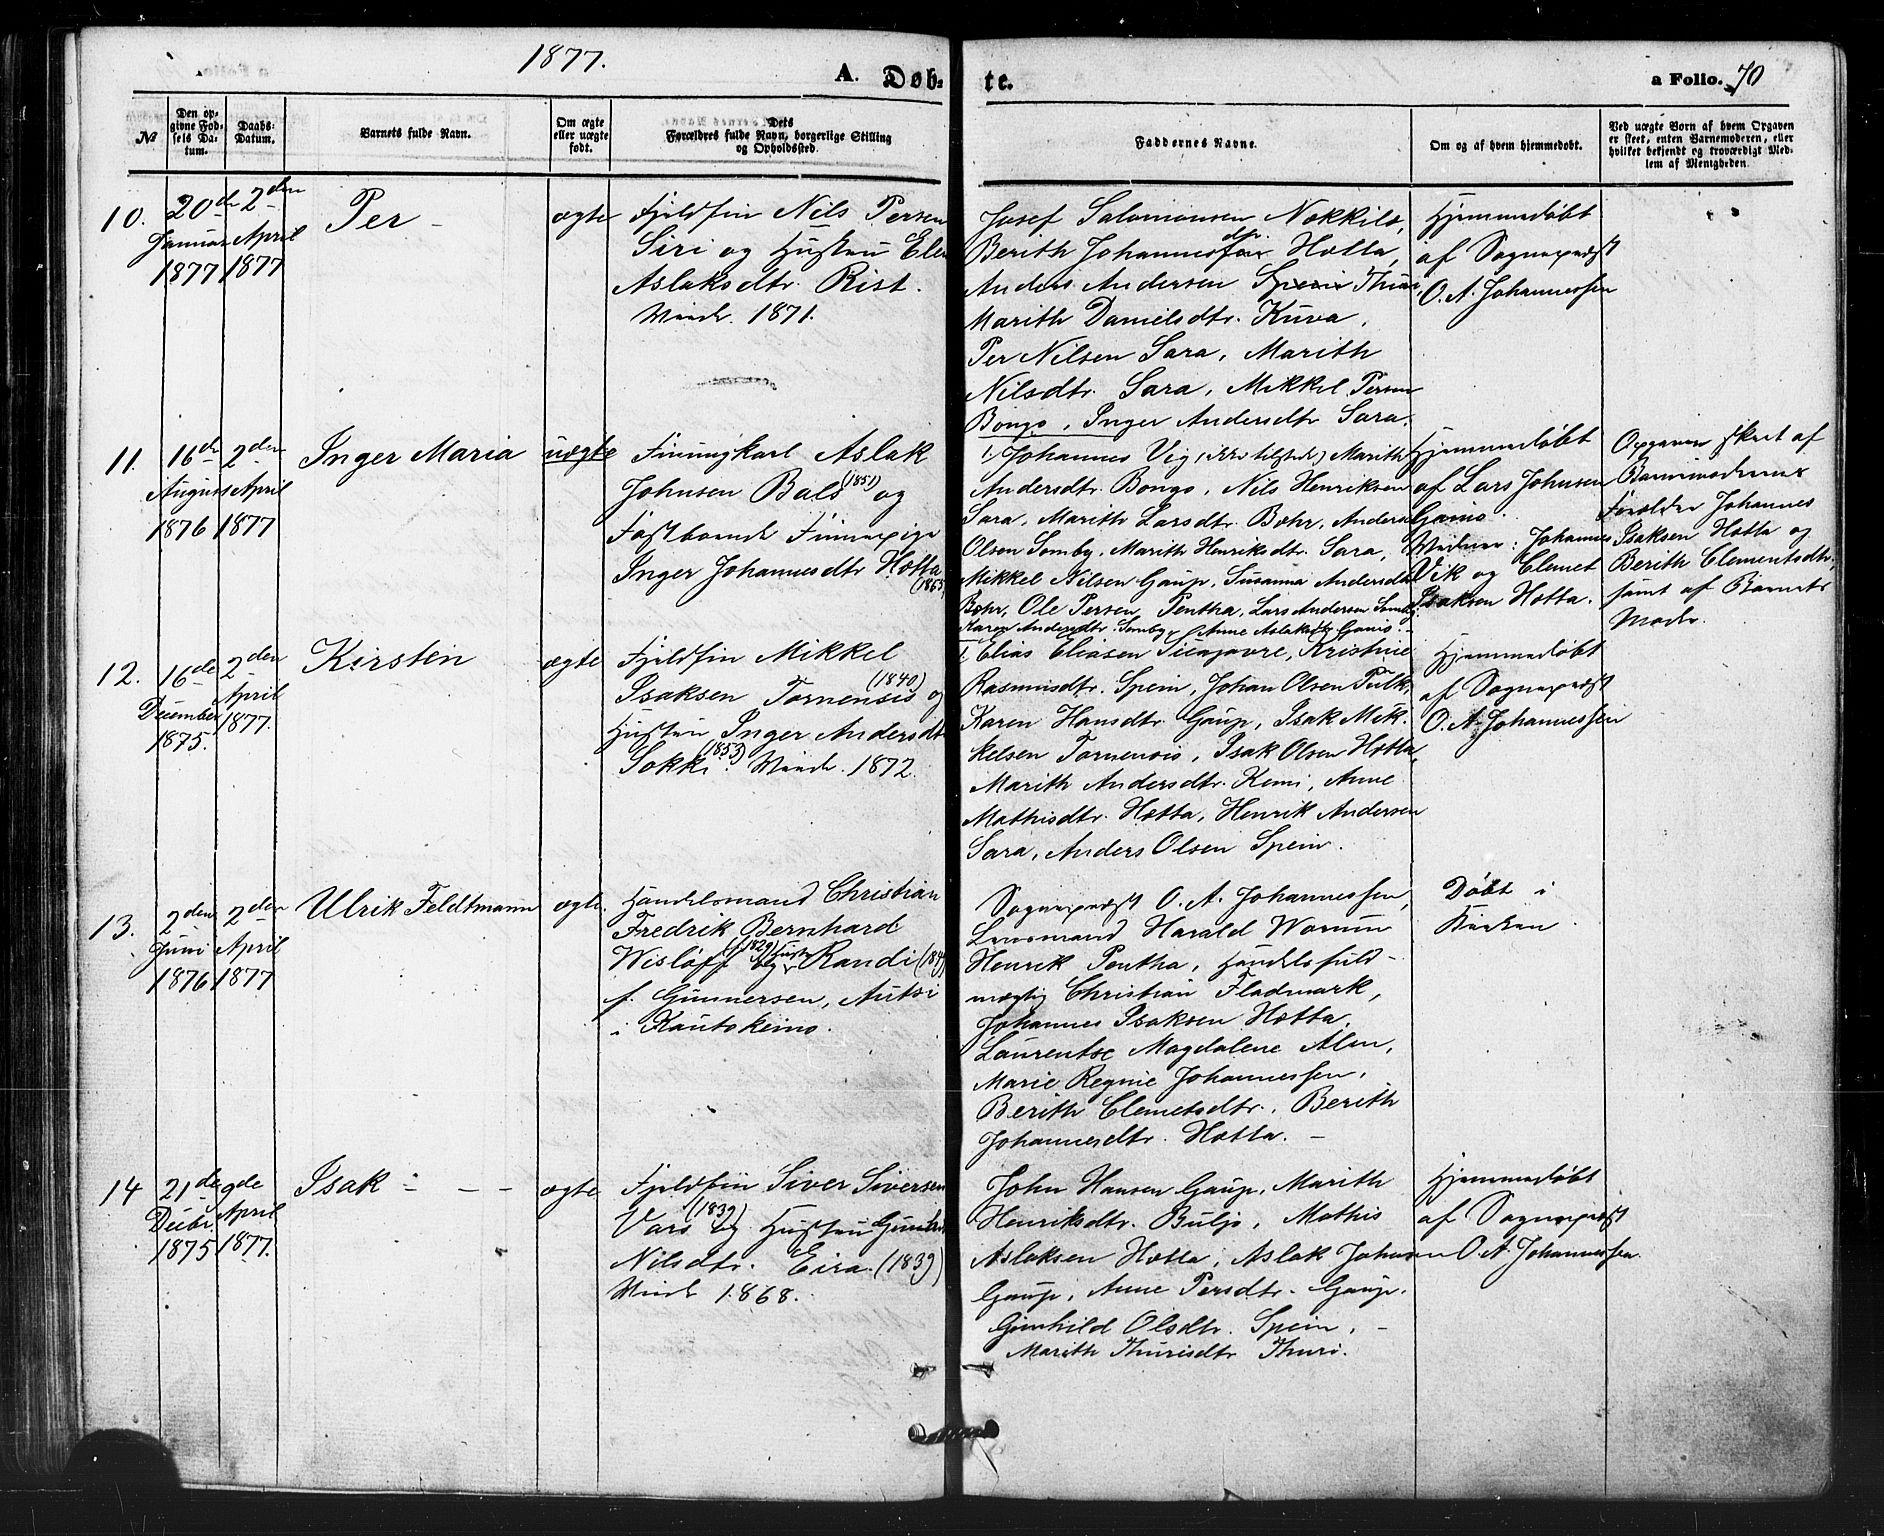 1877.
A. Døb-
te.
a Folio. 70
№
Den op-
givne Fød-
sels Da-
tum.
Daabs-
Datum.
Barnets fulde Navn.
Om ægte
eller uægte
født.
Dets
Forældres fulde Navn, borgerlige Stilling
og Opholdssted.
Faddernes Navne.
Om og af hvem hjemmedøbt.
Ved uægte Børn af hvem Opgaven
er skeet, enten Barnemoderen, eller
hvilket bekjendt og troværdigt Med-
lem af Menigheden.
10.
20de
Januar
1877
2den
April
1877
Per -
ægte
Fjeldfin Nils Persen
Siri og Hustru Elen
Aslaksdtr. Rist.
Viede. 1871.
Josef Salomonsen Nokkilo,
Berith Johannesdtr. Hætta,
Anders Andersen Thuri,
Marith Danielsdtr. Kuva,
Per Nilsen Sara, Marith
Nilsdtr. Sara, Mikkel Persen
Bongo, Inger Andersdtr Sara.
Hjemmedøbt
af Sognepræst
O. A. Johannessen
11.
16de
August
1876
2den
April
1877
Inger Maria
uægte
Finungkarl Aslak
Johnsen Bals (1851) og
Fastboende Finnepige
Inger Johannesdtr Hætta
Johannes Vig, (ikke tilstede) Marith
Andersdtr. Bongo, Nils Henriksen
Sara, Marith Larsdtr. Bæhr, Anders
Olsen Somby, Marith Henriksdtr. Sara,
Mikkel Nilsen Gaup, Susanna Andersdtr
Bæhr, Ole Persen Pentha, Lars Andersen Somby,
Karen Andersdtr. Somby, Anne Aslaksdtr Gænis.
Hjemmedøbt
af Lars Johnsen
Gænis.
Vidner: Johannes
Vik og Clemet
Isaksen Hætta.
Opgaven skeet af
Barnemoderens
Forældre Johannes
Isaksen Hætta og
Berith Clementsdtr,
samt af Barnets
Moder.
12.
16de
December
1875.
2den
April
1877.
Kirsten
ægte
Fjeldfin Mikkel
Isaksen Tornensis (1840) og
Hustru Inger Andersdtr
Sokki (1853). Viede. 1872.
Elias Eliasen Kristine
Rasmusdtr. Spein, Johan Olsen Tulk,
Karen Hansdtr. Gaup, Isak Mik-
kelsen Tornensis, Isak Olsen Hætta,
Marith Andersdtr. Kemi, Anne
Mathisdtr. Hætta, Henrik Andersen
Sara, Anders Olsen Spein.
Hjemmedøbt
af Sognepræst
O. A. Johannessen
13.
2den
Juni
1876
2den
April
1877
Ulrik Feldtmann
ægte.
Handelsmand Christian
Fredrik Bernhard
Wisløff (1829) og Hustru Randi
f. Gunnersen, Autzi
i Kautokeino.
Sognepræst O. A. Johannessen,
Lensmand Harald Worum
Henrik Pentha, Handelsfuld-
mægtig Christian Fladmark,
Johannes Isaksen Hætta,
Laurentse Magdalene Alm,
Marie Regine Johannessen,
Berith Clemetsdtr. Berith
Johannesdtr. Hætta. -
Døbt i
Kirken.
14
21de
Decbr
1875
9de
April
1877.
Isak - - -
ægte
Fjeldfin Siver Siversen
Vars (1839) og Hustru
Nilsdtr. Eira. (1839)
Viede 1868.
John Hansen Gaup, Marith
Henriksdtr. Buljo, Mathis
Aslaksen Hætta, Aslak Johnsen
Gaup, Anne Persdtr. Gaup,
Gunhild Olsdtr. Spein, -
Marith Thurisdtr Thuri.
Hjemmedøbt
af Sognepræst
O. A. Johannessen.